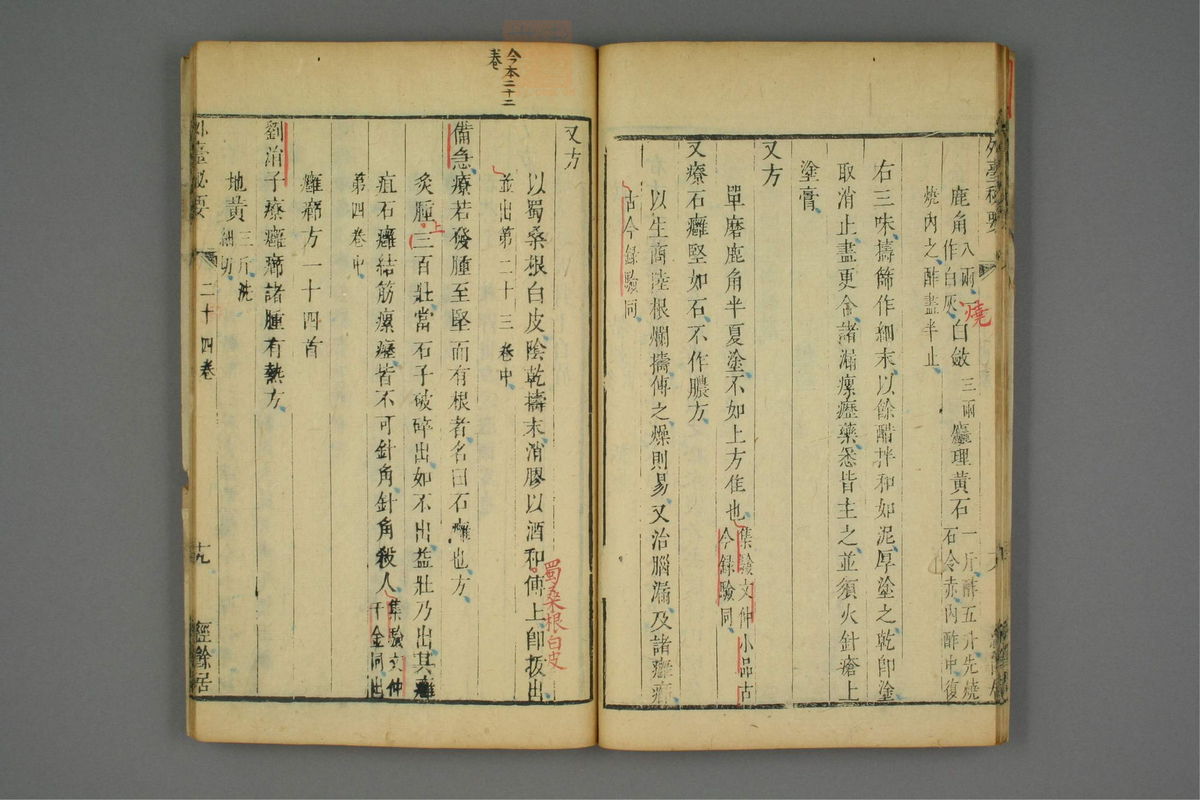 鹿角八兩燒作白灰白斂三兩麤理黃石一斤醉五升先燒石令赤內酢中復
燒內之酢盡半止
右三味擣篩作細末以餘醋拌和如泥厚塗之乾即塗
取消止盡更舍諸漏瘰癧藥悉皆主之並須火針瘡上
塗膏
又方
單磨鹿角半夏塗不如上方佳也集驗文仲小品古今錄驗同
又療石癰堅如石不作膿方
以生商陸根爛擣傅之燥則易又治腦漏及諸癰癤
古今錄驗同
今本二十二卷
又方
以蜀桑根白皮陰乾擣末消膠以酒和傅上即拔出
蜀桑根白皮
並出第二十三卷中
備急療若發腫至堅而有根者名曰石癰也方
灸腫上三百壯當石子破碎出如不出益壯乃出其癰
疽石癰結筋瘰癧皆不可針角針角殺人集驗文仲千金同出
第四卷中
癰癤方一十四首
劉涓子療癰癤諸腫有熱方
地黃三斤洗細切
外臺秘要 二十四卷 十九 經餘居